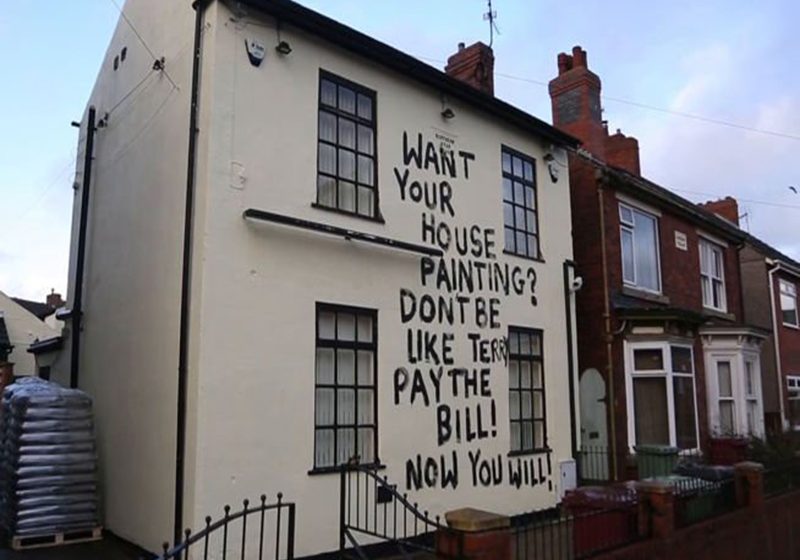 WANT
YOUR
HOUSE
PAINTING?
DON'T BE
LIKE TERRY
PAY THE
BILL!
NOW YOU WILL!